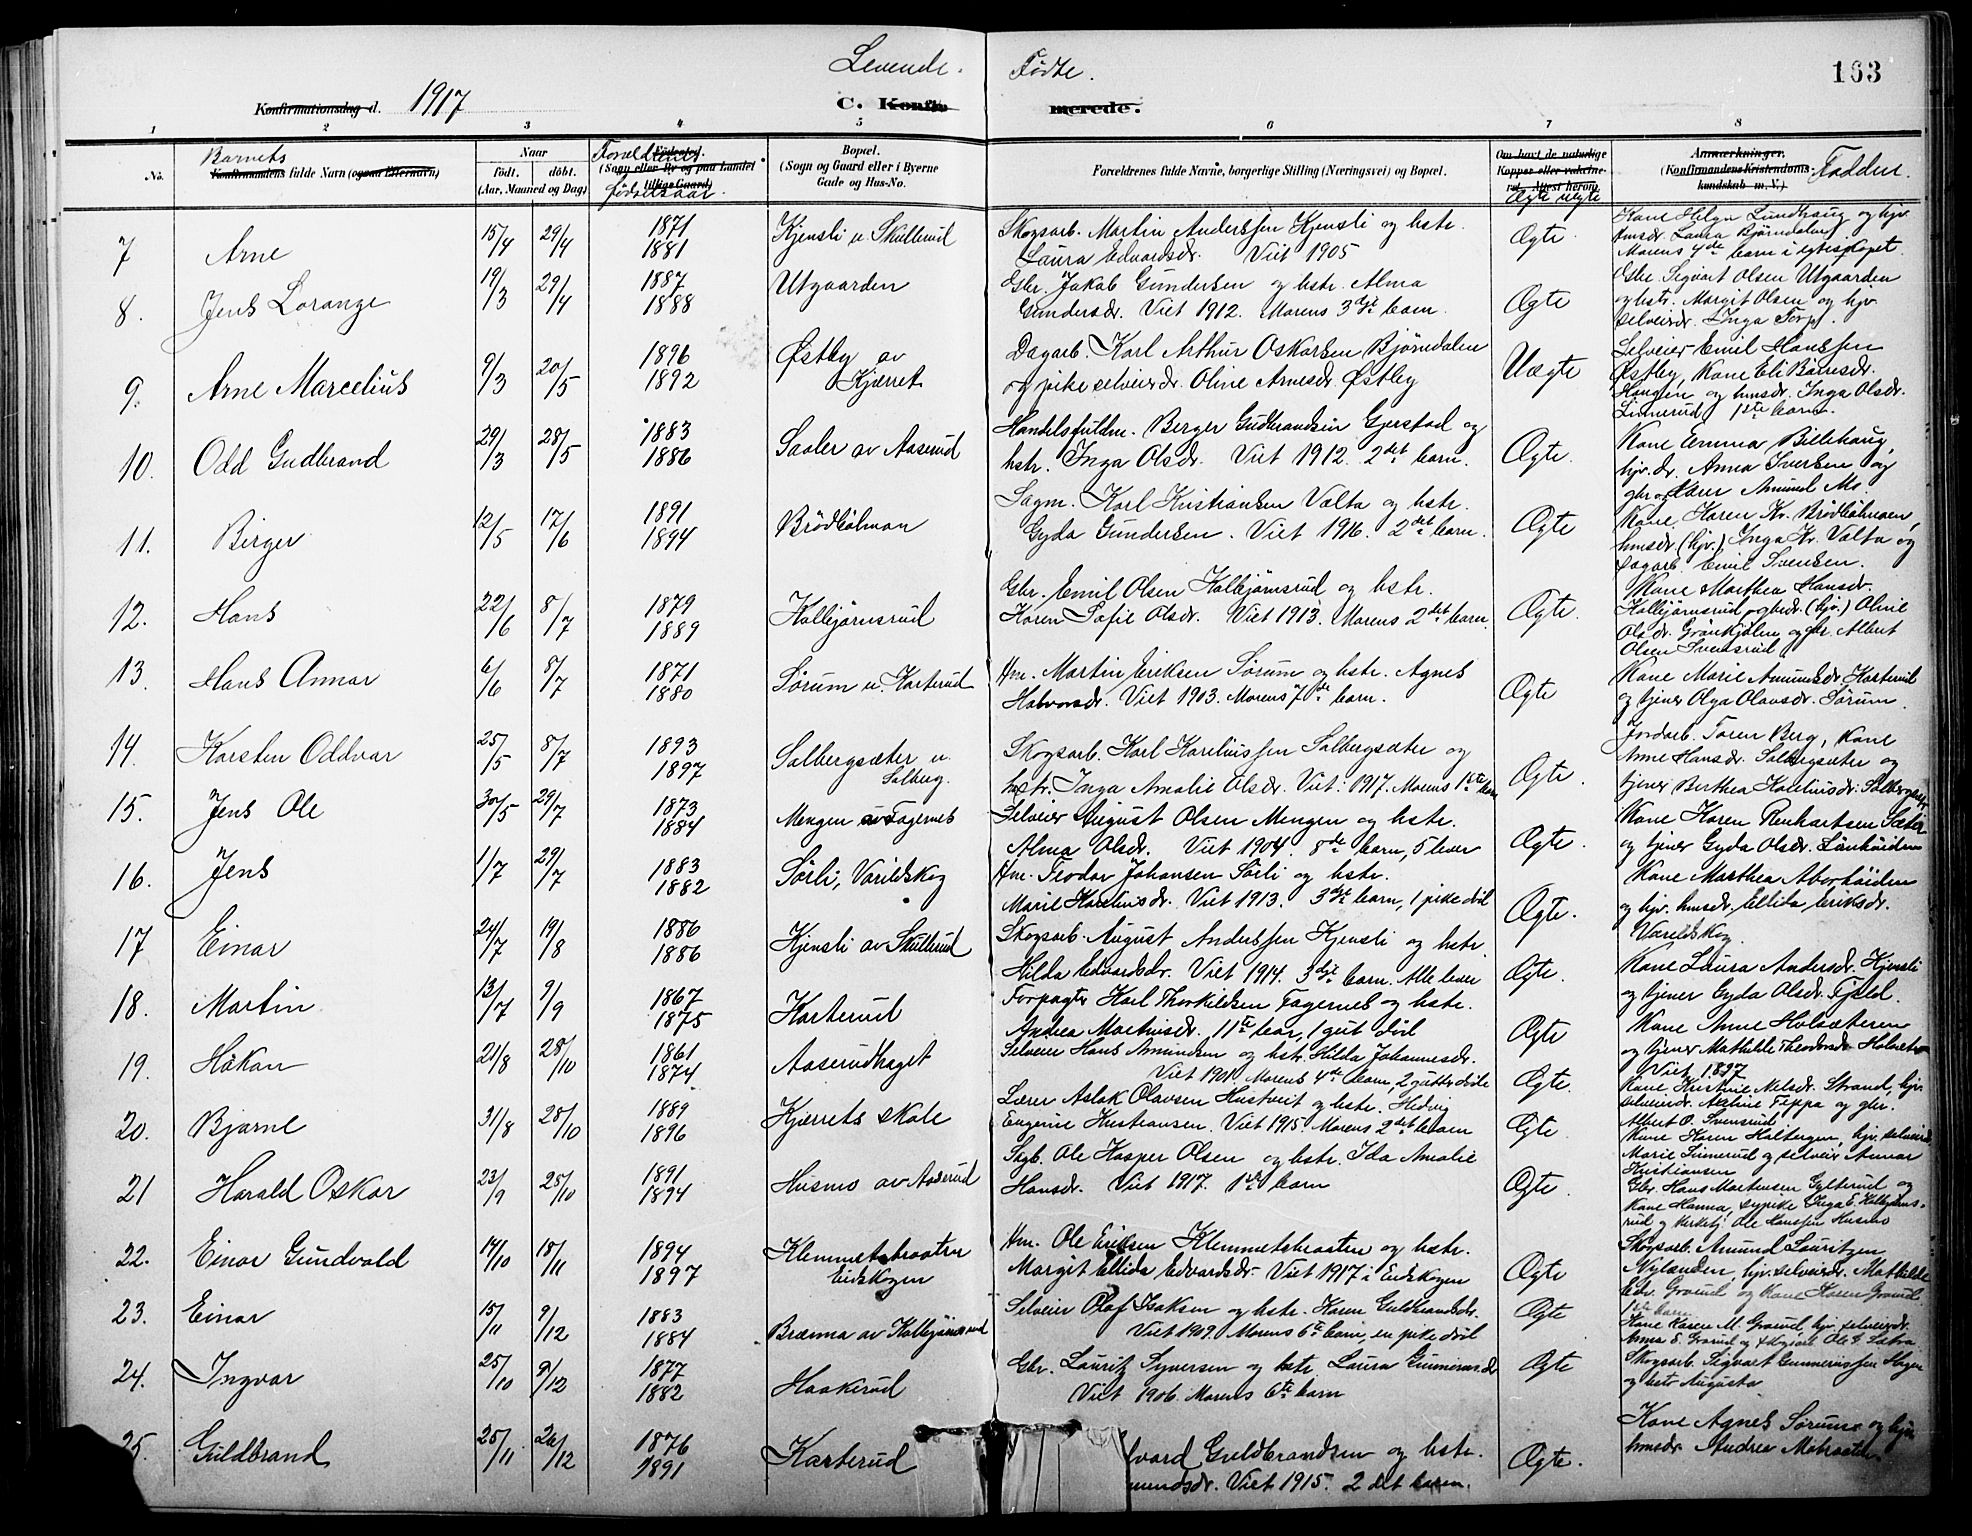 Levende. Fødte.
163
Konfirmationsdag d. 1917
C. Konfir merede.
1 2 3 4 5 6 7 8
No.
Barnets
Konfirmandens fulde Navn (ogsaa Efternavn)
Naar
født. døbt.
(Aar, Maaned og Dag)
Forældrenes
Fødested.
(Sogn eller By og paa Landet
tillige Gaard)
fødselsaar
Bopæl.
(Sogn og Gaard eller i Byerne
Gade og Hus-No.
Forældrenes fulde Navne, borgerlige Stilling (Næringsvei) og Bopæl.
Om havt de naturlige
Kopper eller vaccine-
ret. Attest herom.
Ægte uegte
Anmærkninger.
(Konfirmandens Kristendoms-
kundskab m. V.)
Faddere.
7 Arne 15/4 29/4 1871 1881 Kjensli u. Skullerud
Skogsarb. Martin Anderssen Kjensli og hstr.
Laura Edvardsdr. Viet 1905
Ægte
Kone Helga Lundhaug og hjv.
hmsdr. Laura Bjørndalen
Morens 4de barn i egteskapet.
8. Jens Lorange 19/3 29/4 1887 1888 Utgaarden
Gbr. Jakob Gundersen og hstr. Alma
Gundersdr. Viet 1912. Morens 3dje barn.
Ægte
Gbr. Sigvart Olsen Utgaarden
og hstr. Margit Olsen og hjv.
selveierdr. Inga Torp.
9. Arne Marcelius 9/3 20/5 1896 1892 Østby av Kjerret
Dagarb. Karl Arthur Oskarsen Bjørndalen
og pike selveierdr. Oline Arnesdr. Østby
Uægte
Selveier Emil Hanssen
Østby, Kone Eli Børresdr.
Haugen og hmsdr. Inga Olsdr.
Linnerud 1ste barn.
10. Odd Gudbrand 29/3 28/5 1883 1886 Saaler av Aaserud
Handelsfuldm. Berger Gudbrandsen Gjerstad og
hstr. Inga Olsdr. Viet 1912. 2det barn.
Ægte.
Kone Emma Billehaug,
hjv. dr. Anna Iversen og
gbr og Lærer Amund Mo.
11. Birger 12/5 17/6 1891 1894 Brødbølmon
Sagm. Karl Kristiansen Valta og hstr.
Gyda Gundersen. Viet 1916. 2det barn.
Ægte
Kone Karen Kr. Brødbølmoen,
hmsdr. (hjv.) Inga Kr. Valta og
Dagarb. Emil Svensen.
12. Hans 22/6 8/7 1879 1889 Kolbjørnsrud
Gbr. Emil Olsen Kolbjørnsrud og hstr.
Karen Sofie Olsdr. Viet 1913. Morens 2det barn.
Ægte.
Kone Marthea Hansdr.
Kolbjørnsrud, gbrdr. (hjv.) Oline
Olsdr. Grønkjølen og gbr. Albert
Olsen Svensrud
13. Hans Annar 6/6 8/7 1871 1880 Sørum u. Karterud
Hm. Martin Eriksen Sørum og hstr. Agnes
Halvorsdr. Viet 1903. Morens 7de barn.
Ægte
Kone Marie Amundsdr. Karterud
og tjener Olga Olavsdr. Sørum.
14. Karsten Oddvar 25/5 8/7 1893 1897 Solbergsæter u. Solberg.
Skogsarb. Karl Kareliussen Solbergsæter og
hstr. Inga Amalie Olsdr. Viet: 1917. Morens 1ste barn
Ægte.
Jordarb. Toren Berg, Kone
Anne Hansdr. Solbergsæter og
tjener Berthea Kareliusdr. Solbergsæter
15. Jens Ole 30/5 29/7 1873 1884 Mengen av Fagernes
Selveier August Olsen Mengen og hstr.
Alma Olsdr. Viet 1904. 8de barn, 5 lever
Ægte.
Kone Karen Renhartsen Sæter
og tjener Gyda Olsdr.
16. Jens 1/7 29/7 1883 1882 Sørli, Varildskog
Hm. Feodor Johansen Sørli og hstr.
Marie Kareliusdr. Viet 1913. 3dje barn, 1 pike død
Ægte.
Kone Marthea Aborhøiden
og hjv. hmsdr. Ellida Eriksdr.
Varildskog
17 Einar 24/7 19/8 1886 1886 Kjensli av Skullerud
Skogsarb. August Anderssen Kjensli og hstr.
Hilda Edvardsdr. Viet 1914. 3dje barn. Alle lever
Ægte.
Kone Laura Andersdr. Kjensli
og tjener Gyda Olsdr. Fjeld.
18. Martin 13/7 9/9 1867 1875 Karterud
Forpagter Karl Thorkildsen Fagernes og hstr.
Andrea Mathisdr. 11te bar, 1 gut død
Ægte
Kone Anne Holsæteren
og tjener Mathilde Theodorsdr. Holsæter
Viet 1897
19. Håkon 21/8 28/10 1861 1874 Aaserudhaget
Selveier Hans Amundsen og hstr. Hilda Johannesdr.
Viet 1901. Morens 4de barn, 2 gutter døde
Ægte.
Kone Kristine Nilsdr. Strand, hjv.
selveierdr. Aaline Teppa og gbr.
Albert O. Svensrud
20. Bjarne 31/8 28/10 1889 1896 Kjerrets skole
Lærer Aslak Olavsen Hustveit og hstr. Hedvig
Eugenie Kristiansen. Viet 1915. Morens 2det barn
Ægte.
Kone Karen Holtbergen, hjv. selveierd.
Marie Linnerud og selveier Annar
Kristiansen
21 Harald Oskar 23/9 28/10 1891 1894 Husmo av Aaserud
Sagb. Ole Kasper Olsen og hstr. Ida Amalie
Hansdr. Viet 1917. 1ste barn
Ægte.
Gbr. Hans Martinsen Gylterud og
Kone Hanna, sypike Inga E. Kolbjørns-
rud og kirketj. Ole Hanssen Husmo
22. Einar Gundvald 14/10 18/11 1894 1897 Klemmetsbraaten Eidskogen
Hm. Ole Eriksen Klemmetsbraaten og hstr.
Margit Ellida Edvardsdr. Viet 1917 i Eidskogen
Ægte
Skogsarb. Amund Lauritzen
Nylænden, hjv. selveierdr. Mathilde
Edv. Graaud og Kone Karen Graaud.
1ste barn
23. Einar 15/11 9/12 1883 1884 Brænna av Kolbjørnsrud
Selveier Olaf Isaksen og hstr. Karen Guldbrandsdr.
Viet 1909. Morens 6te barn, en pike død
Ægte
Kone Karen M. Graaud, hjv. selveierdr.
Anna E. Graaud og Ole G. Sætra
24. Ingvar 25/10 9/12 1877 1882 Haakerud
Gbr. Lauritz Syversen og hstr. Laura Gunnerusdr.
Viet 1906. Morens 6te barn
Ægte
Skogsarb. Sigvart Gunnerussen Hagen
og hstr Augusta
25. Guldbrand 25/11 26/12 1876 1891 Karterud
vard Guldbrandsen og hstr.
mundsdr. Viet 1915. 2det barn.
Ægte.
Kone Agnes Sørum og hjv.
hmsdr. Andrea Mobraaten